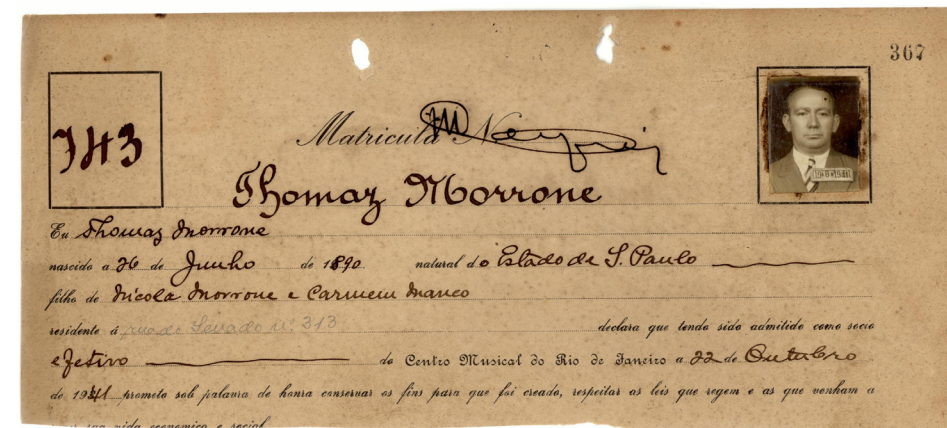 367
743
Matricula N
Thomaz Morrone
Eu Thomaz Morrone
nascido a 26 de Junho de 1890 natural do Estado de S. Paulo
filho de Nicola Morrone e Carmem Manco
residente á rua do Senado nº 313 declara que tendo sido admitido como socio
efetivo do Centro Musical do Rio de Janeiro a 22 de Outubro
de 1941 prometo sob palavra de honra conservar os fins para que foi creado, respeitar as leis que regem e as que venham a
sua vida economica e social